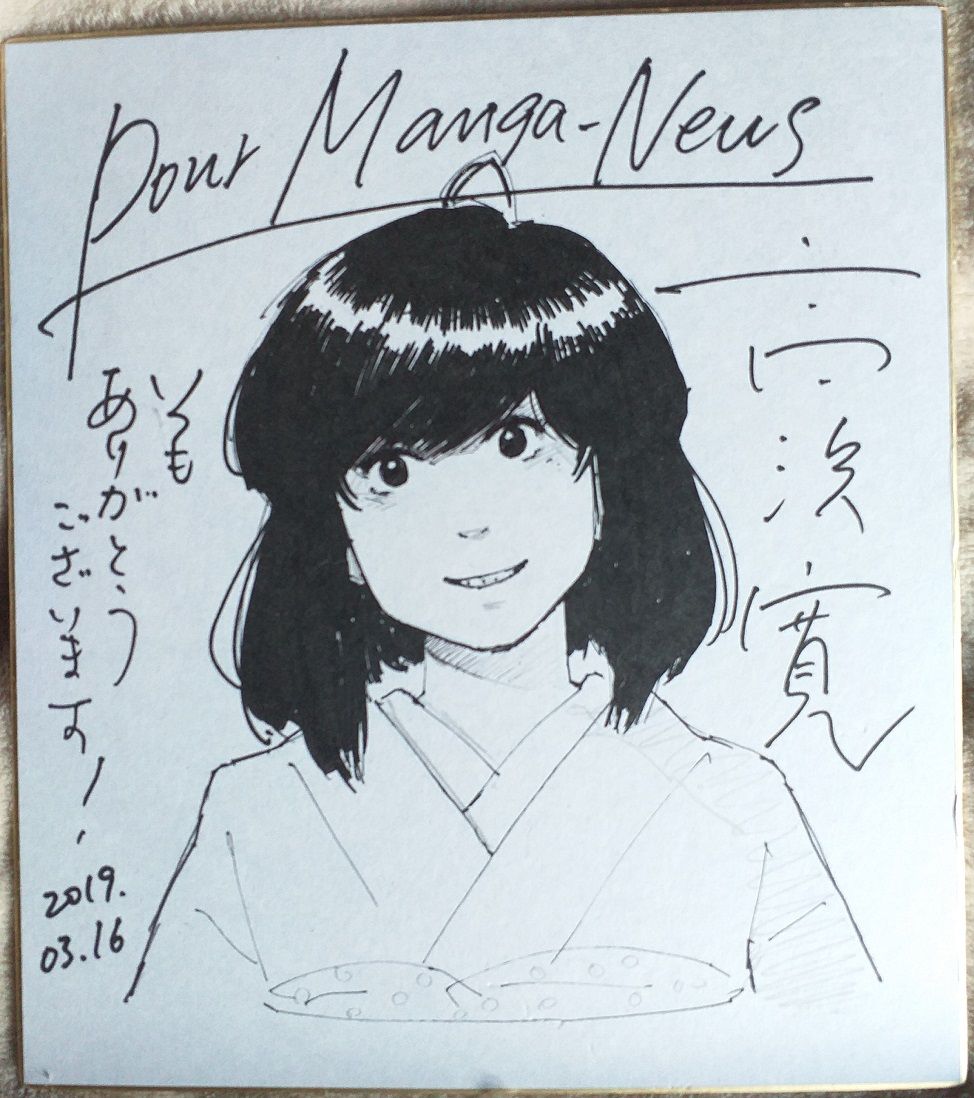 Pour Manga-News
高浜寛
いつも
ありがとう
ございます!
2019.
03.16